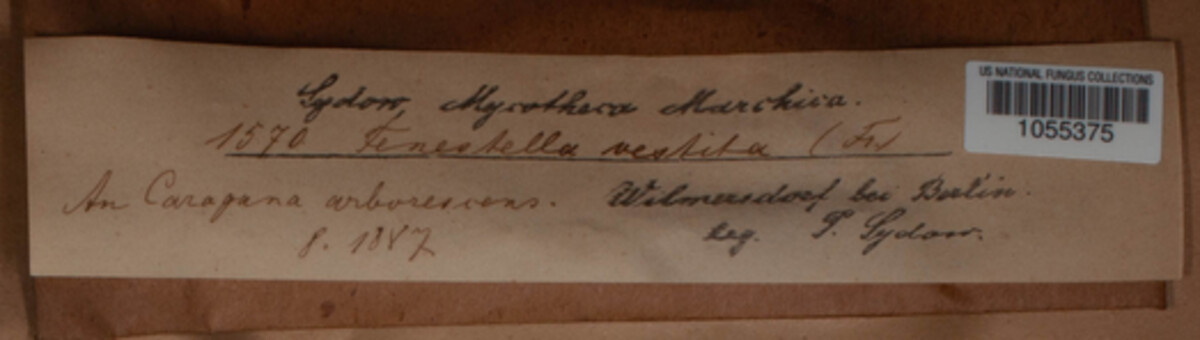 Sydow, Mycotheca Marchica.
1570 Fenestella vestita (Fr.)
An Caragana arborescens. Wilmersdorf bei Berlin.
8. 1887 leg. P. Sydow.
US NATIONAL FUNGUS COLLECTIONS
1055375